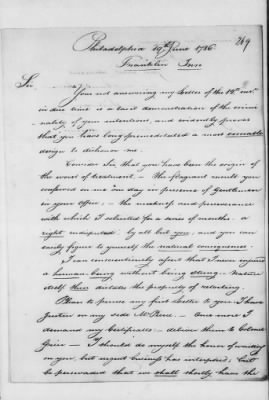 269
Philadelphia 19th June 1786
Franklin Inn
Sir
Your not answering my Letter of the 12th inst.
in due time is a tacit demonstration of the crimi-
nality of your intentions, and evidently proves
that you have long premeditated a most
design to dishonor me.
Consider Sir, that you have been the origin
of the worst of treatment — The flagrant insults you
conferred on me one day in presence of Gentlemen
in your office; — the meekness and perseverance
with which I solicited for a series of months a
right undisputed by all but you, and you can
easily figure to yourself the natural consequences.
I am conscientiously apt that I never injured
a human being without being stung. Nature
itself thus dictates the property of retorting.
Please to peruse my first Letter to you I have
Justice on my side Mr Pierce — Once more I
demand my Certificates — deliver them to Colonel
Grier — I should do myself the honor of waiting
on you, but urgent business has interposed; but
be persuaded that we shall shortly have the